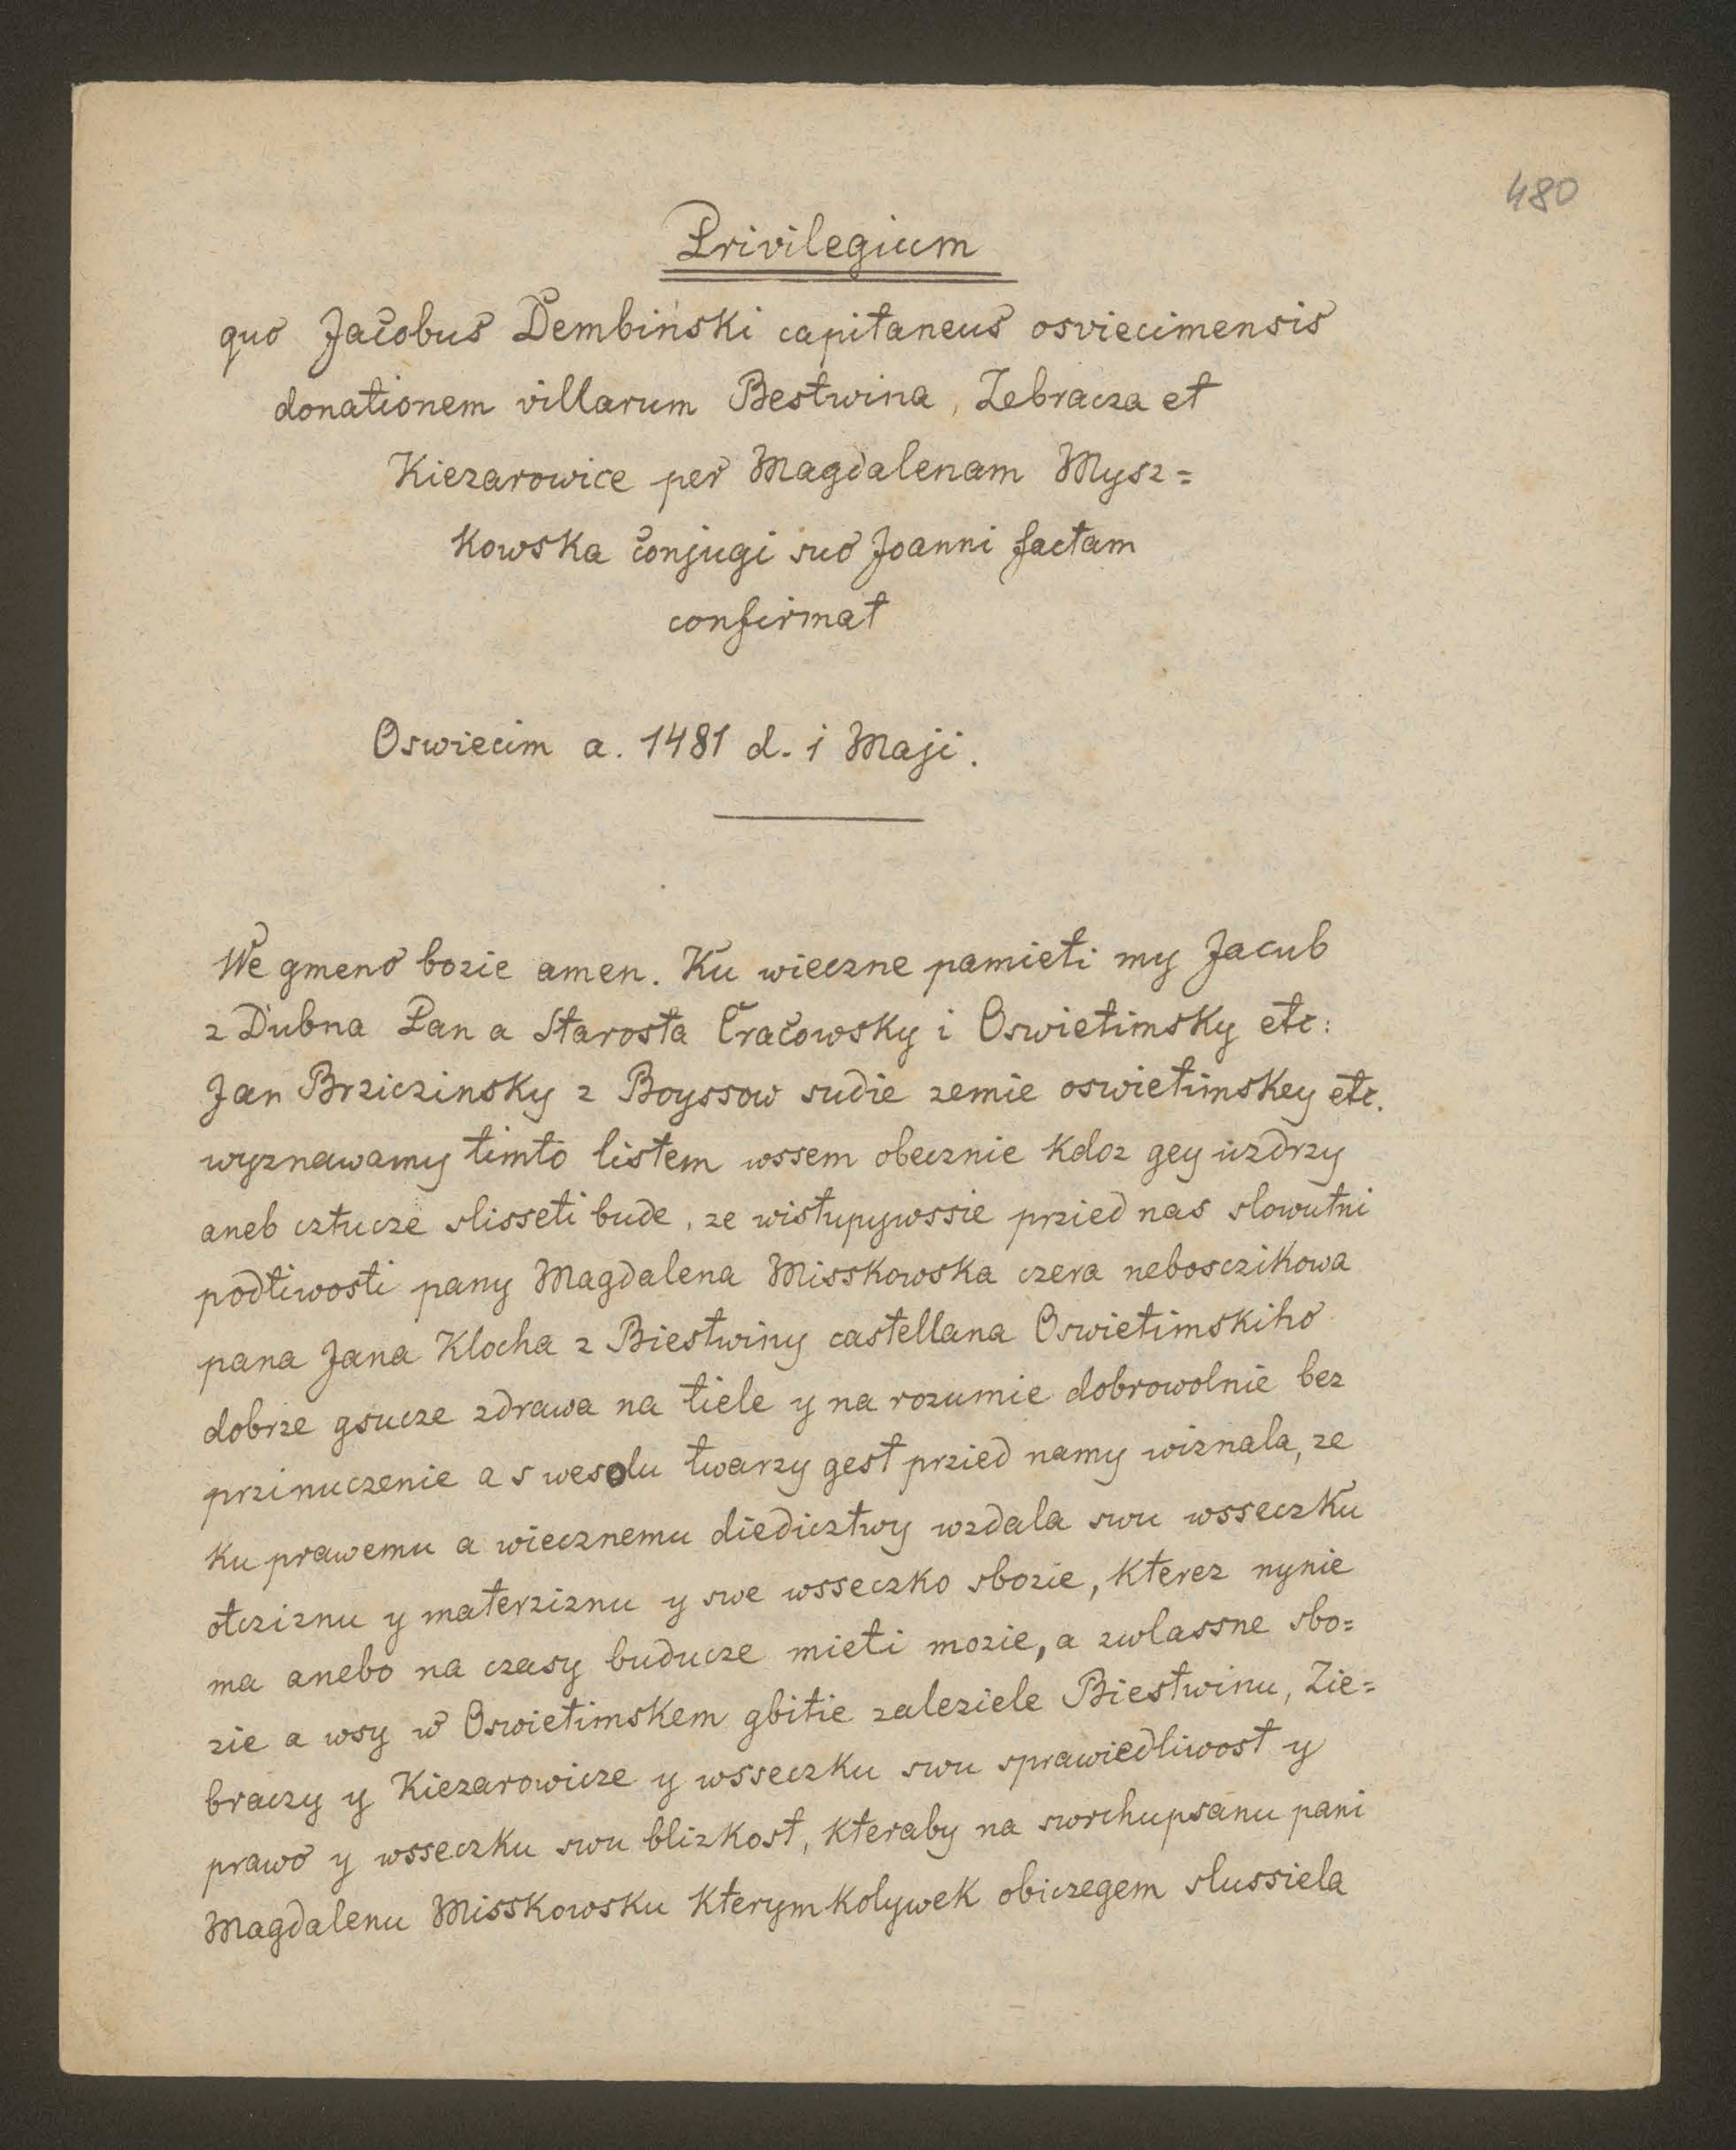 480
Privilegium
quo Jacobus Dembiński capitaneus osviecimensis
donationem villarum Bestwina, Zebracza et
Kiezarowice per Magdalenam Mysz=
kowska conjugi suo Joanni factam
confirmat
Oswiecim a. 1481 d. i Maji.
We gmeno bozie amen. Ku wieczne pamieti my Jacub
z Dubna Pan a Starosta Cracowsky i Oswietimsky etc:
Jan Brziczinsky z Boyssow sudie zemie oswietimskey etc.
wyznawamy timto listem wssem obecznie kdoz gey uzdrzy
aneb cztucze slisseti bude, ze wistupywssie przied nas slowutni
podtiwosti pany Magdalena Misskowska czera nebosczikowa
pana Jana Klocha z Biestwiny castellana Oswietimskiho
dobrze gsucze zdrawa na tiele y na rozumie dobrowolnie bez
przinuczenie a s wesolu twarzy gest przied namy wiznala, ze
ku prawemu a wiecznemu diedicztwy wzdala swu wsseczku
otcziznu y materziznu y swe wsseczko sbozie, kterez nynie
ma anebo na czasy buducze mieti mozie, a zwlassne sbo=
zie a wsy w Oswietimskem gbitie zaleziele Biestwinu, Zie=
braczy y Kiezarowicze y wsseczku swu sprawiedliwost y
prawo y wsseczku swu blizkost, kteraby na swrchupsanu pani
Magdalenu Misskowsku kterymkolywek obiczegem slussiela